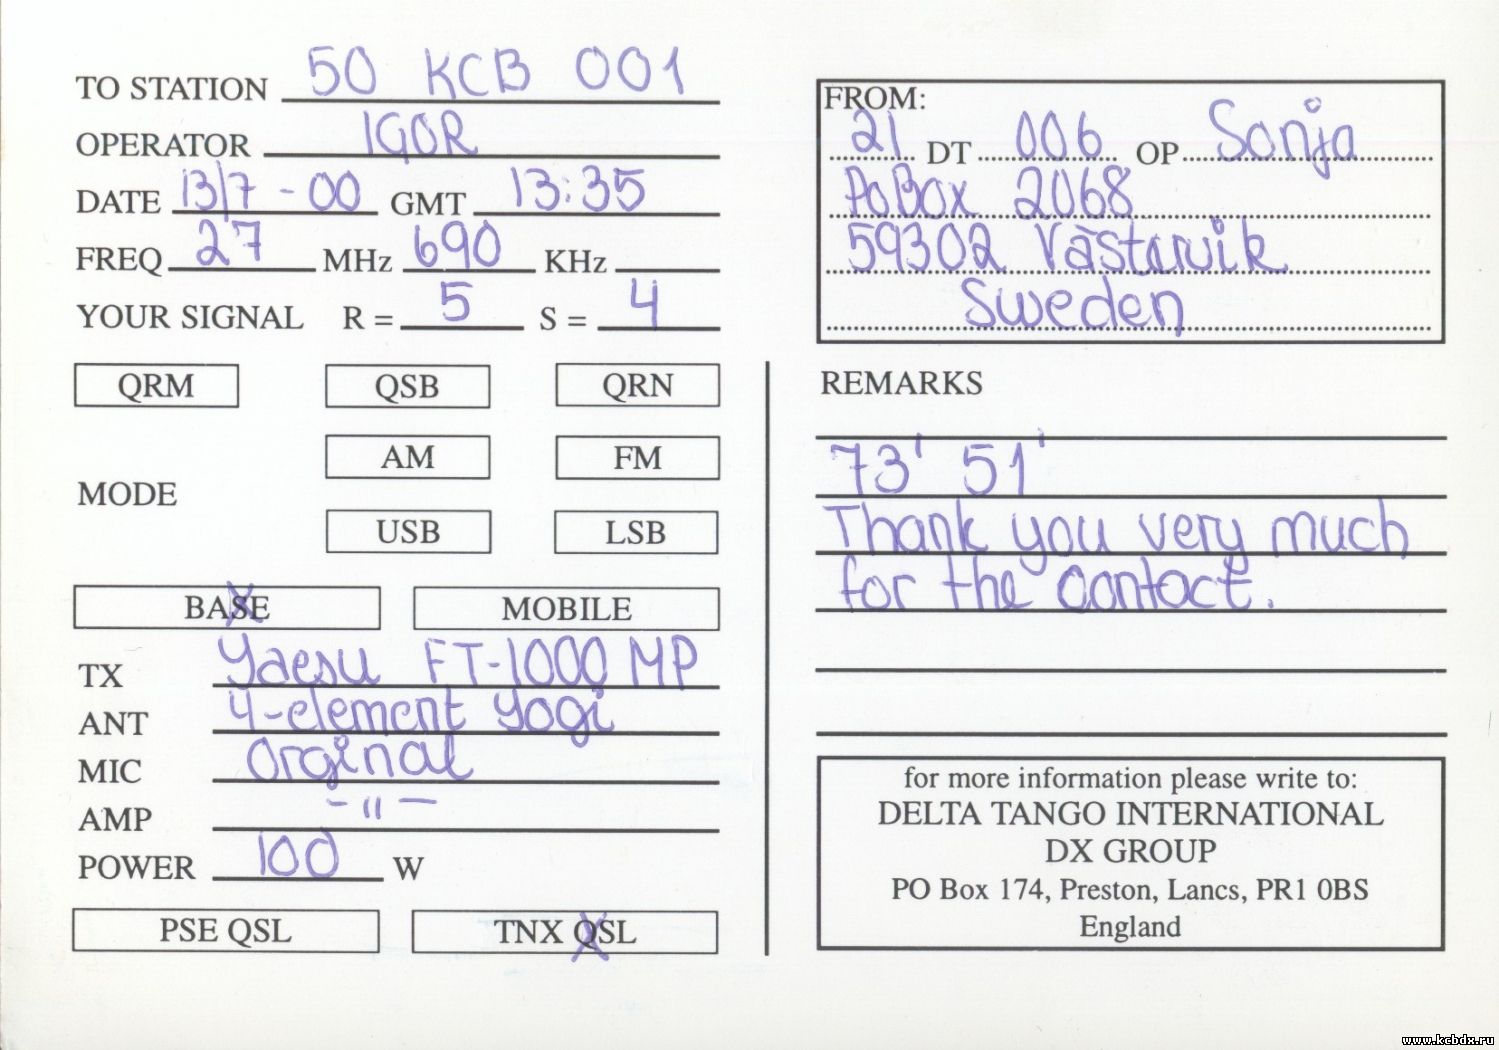 TO STATION 50 KCB 001
OPERATOR IGOR
DATE 13/7 - 00 GMT 13:35
FREQ 27 MHz 690 KHz
YOUR SIGNAL R = 5 S = 4
QRM QSB QRN
AM FM
MODE
USB LSB
BASE MOBILE
TX Yaesu FT-1000 MP
ANT 4-element Yogi
MIC Orginal
AMP -"-
POWER 100 W
PSE QSL TNX QSL
FROM:
21 DT 006 OP Sonja
PoBox 2068
59302 Västervik
Sweden
REMARKS
73' 51'
Thank you very much
for the contact.
for more information please write to:
DELTA TANGO INTERNATIONAL
DX GROUP
PO Box 174, Preston, Lancs, PR1 0BS
England
www.kcbdx.ru